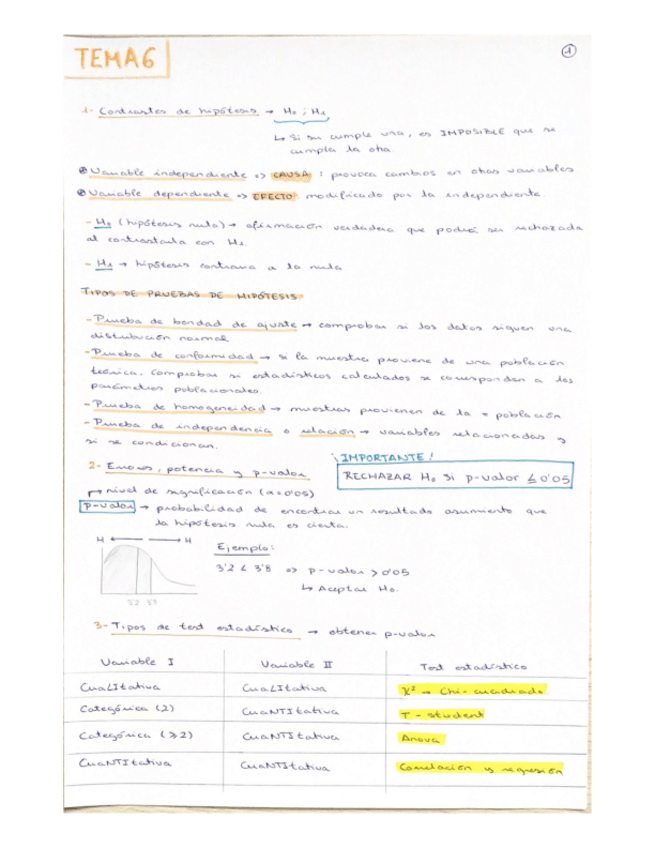 TEMA6
1
1- Contrastes de hipótesis → H₀ ; H₁
↳ Si se cumple una, es IMPOSIBLE que se
cumpla la otra.
Variable independiente => CAUSA : provoca cambios en otras variables
Variable dependiente => EFECTO modificado por la independiente.
- H₀ (hipótesis nula) → afirmación verdadera que podrá ser rechazada
al contrastarla con H₁.
- H₁ → hipótesis contraria a la nula
TIPOS DE PRUEBAS DE HIPÓTESIS
- Prueba de bondad de ajuste → comprobar si los datos siguen una
distribución normal
- Prueba de conformidad → si la muestra proviene de una población
teórica. Comprobar si estadísticos calculados se corresponden a los
parámetros poblacionales.
- Prueba de homogeneidad → muestras provienen de la = población
- Prueba de independencia o relación → variables relacionadas y
si se condicionan.
¡IMPORTANTE!
2- Errores, potencia y p-valor
RECHAZAR H₀ si p-valor ≤ 0'05
nivel de significación (α=0'05)
p-valor → probabilidad de encontrar un resultado asumiendo que
la hipótesis nula es cierta.
H ← → H
Ejemplo:
3'2 < 3'8 => p-valor > 0'05
↳ Aceptar H₀.
3- Tipos de test estadístico → obtener p-valor
Variable I Variable II Test estadístico
CuaLItativa CuaLItativa χ² → Chi-cuadrado
Categórica (2) CuaNTItativa T-student
Categórica (≥2) CuaNTItativa Anova
CuaNTItativa CuaNTItativa Correlación y regresión